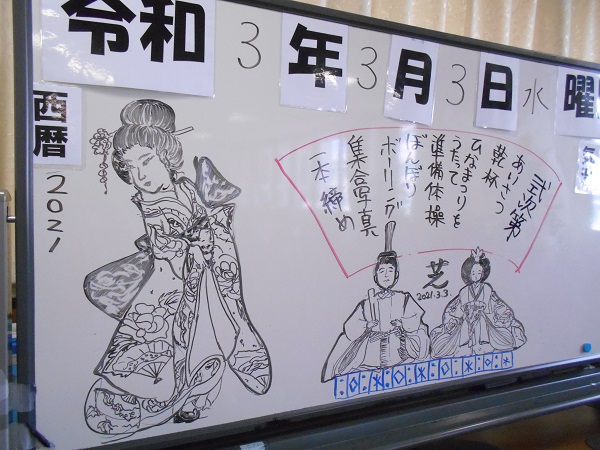 令和3年3月3日水曜
西暦2021
式次第
あいさつ
乾杯
ひなまつりを
うたって
準備体操
ぼんぼり
ボーリング
集合写真
一本締め
芝
2021.3.3.